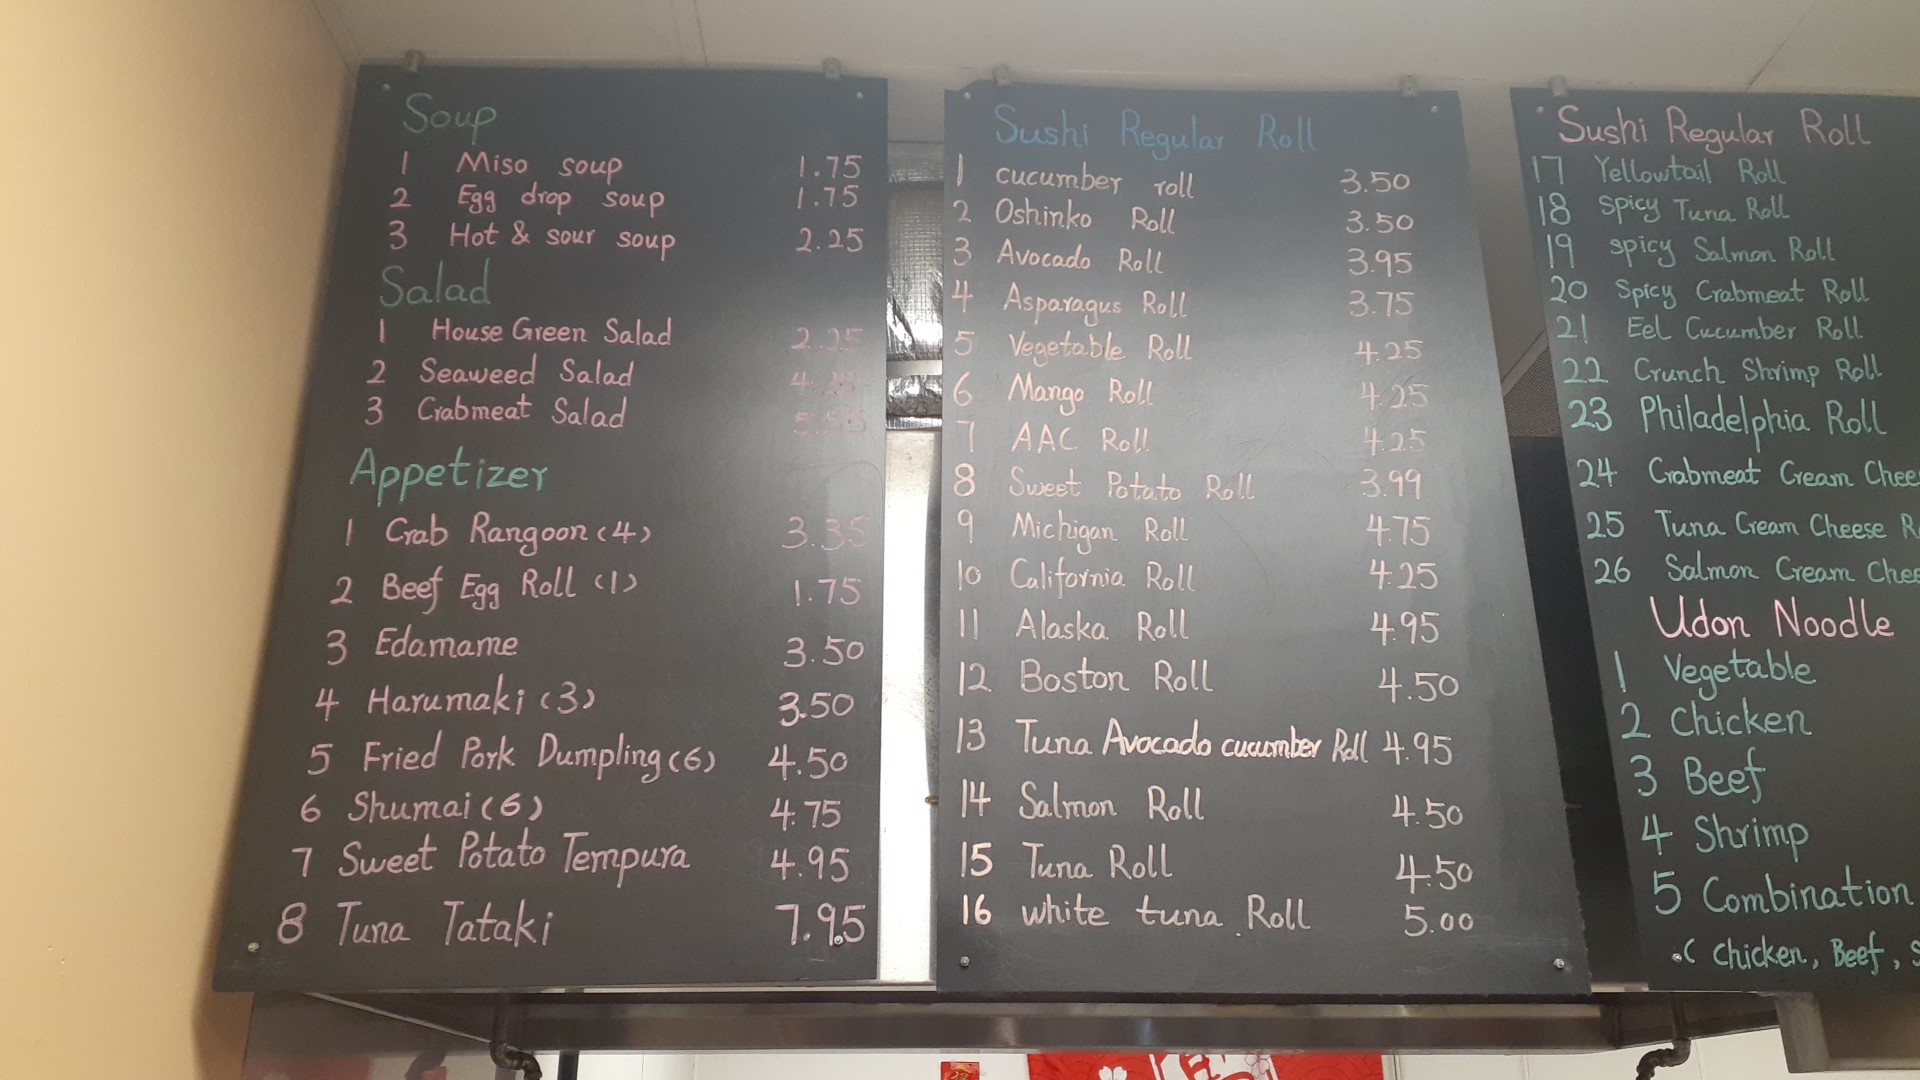 Soup
1 Miso soup 1.75
2 Egg drop soup 1.75
3 Hot & sour soup 2.25
Salad
1 House Green Salad 2.25
2 Seaweed Salad 4.25
3 Crabmeat Salad
Appetizer
1 Crab Rangoon (4) 3.35
2 Beef Egg Roll (1) 1.75
3 Edamame 3.50
4 Harumaki (3) 3.50
5 Fried Pork Dumpling (6) 4.50
6 Shumai (6) 4.75
7 Sweet Potato Tempura 4.95
8 Tuna Tataki 7.95
Sushi Regular Roll
1 cucumber roll 3.50
2 Oshinko Roll 3.50
3 Avocado Roll 3.95
4 Asparagus Roll 3.75
5 Vegetable Roll 4.25
6 Mango Roll 4.25
7 AAC Roll 4.25
8 Sweet Potato Roll 3.99
9 Michigan Roll 4.75
10 California Roll 4.25
11 Alaska Roll 4.95
12 Boston Roll 4.50
13 Tuna Avocado cucumber Roll 4.95
14 Salmon Roll 4.50
15 Tuna Roll 4.50
16 white tuna Roll 5.00
Sushi Regular Roll
17 Yellowtail Roll
18 Spicy Tuna Roll
19 spicy Salmon Roll
20 Spicy Crabmeat Roll
21 Eel Cucumber Roll
22 Crunch Shrimp Roll
23 Philadelphia Roll
24 Crabmeat Cream Chee
25 Tuna Cream Cheese R
26 Salmon Cream Chee
Udon Noodle
1 Vegetable
2 Chicken
3 Beef
4 Shrimp
5 Combination
( Chicken, Beef, S